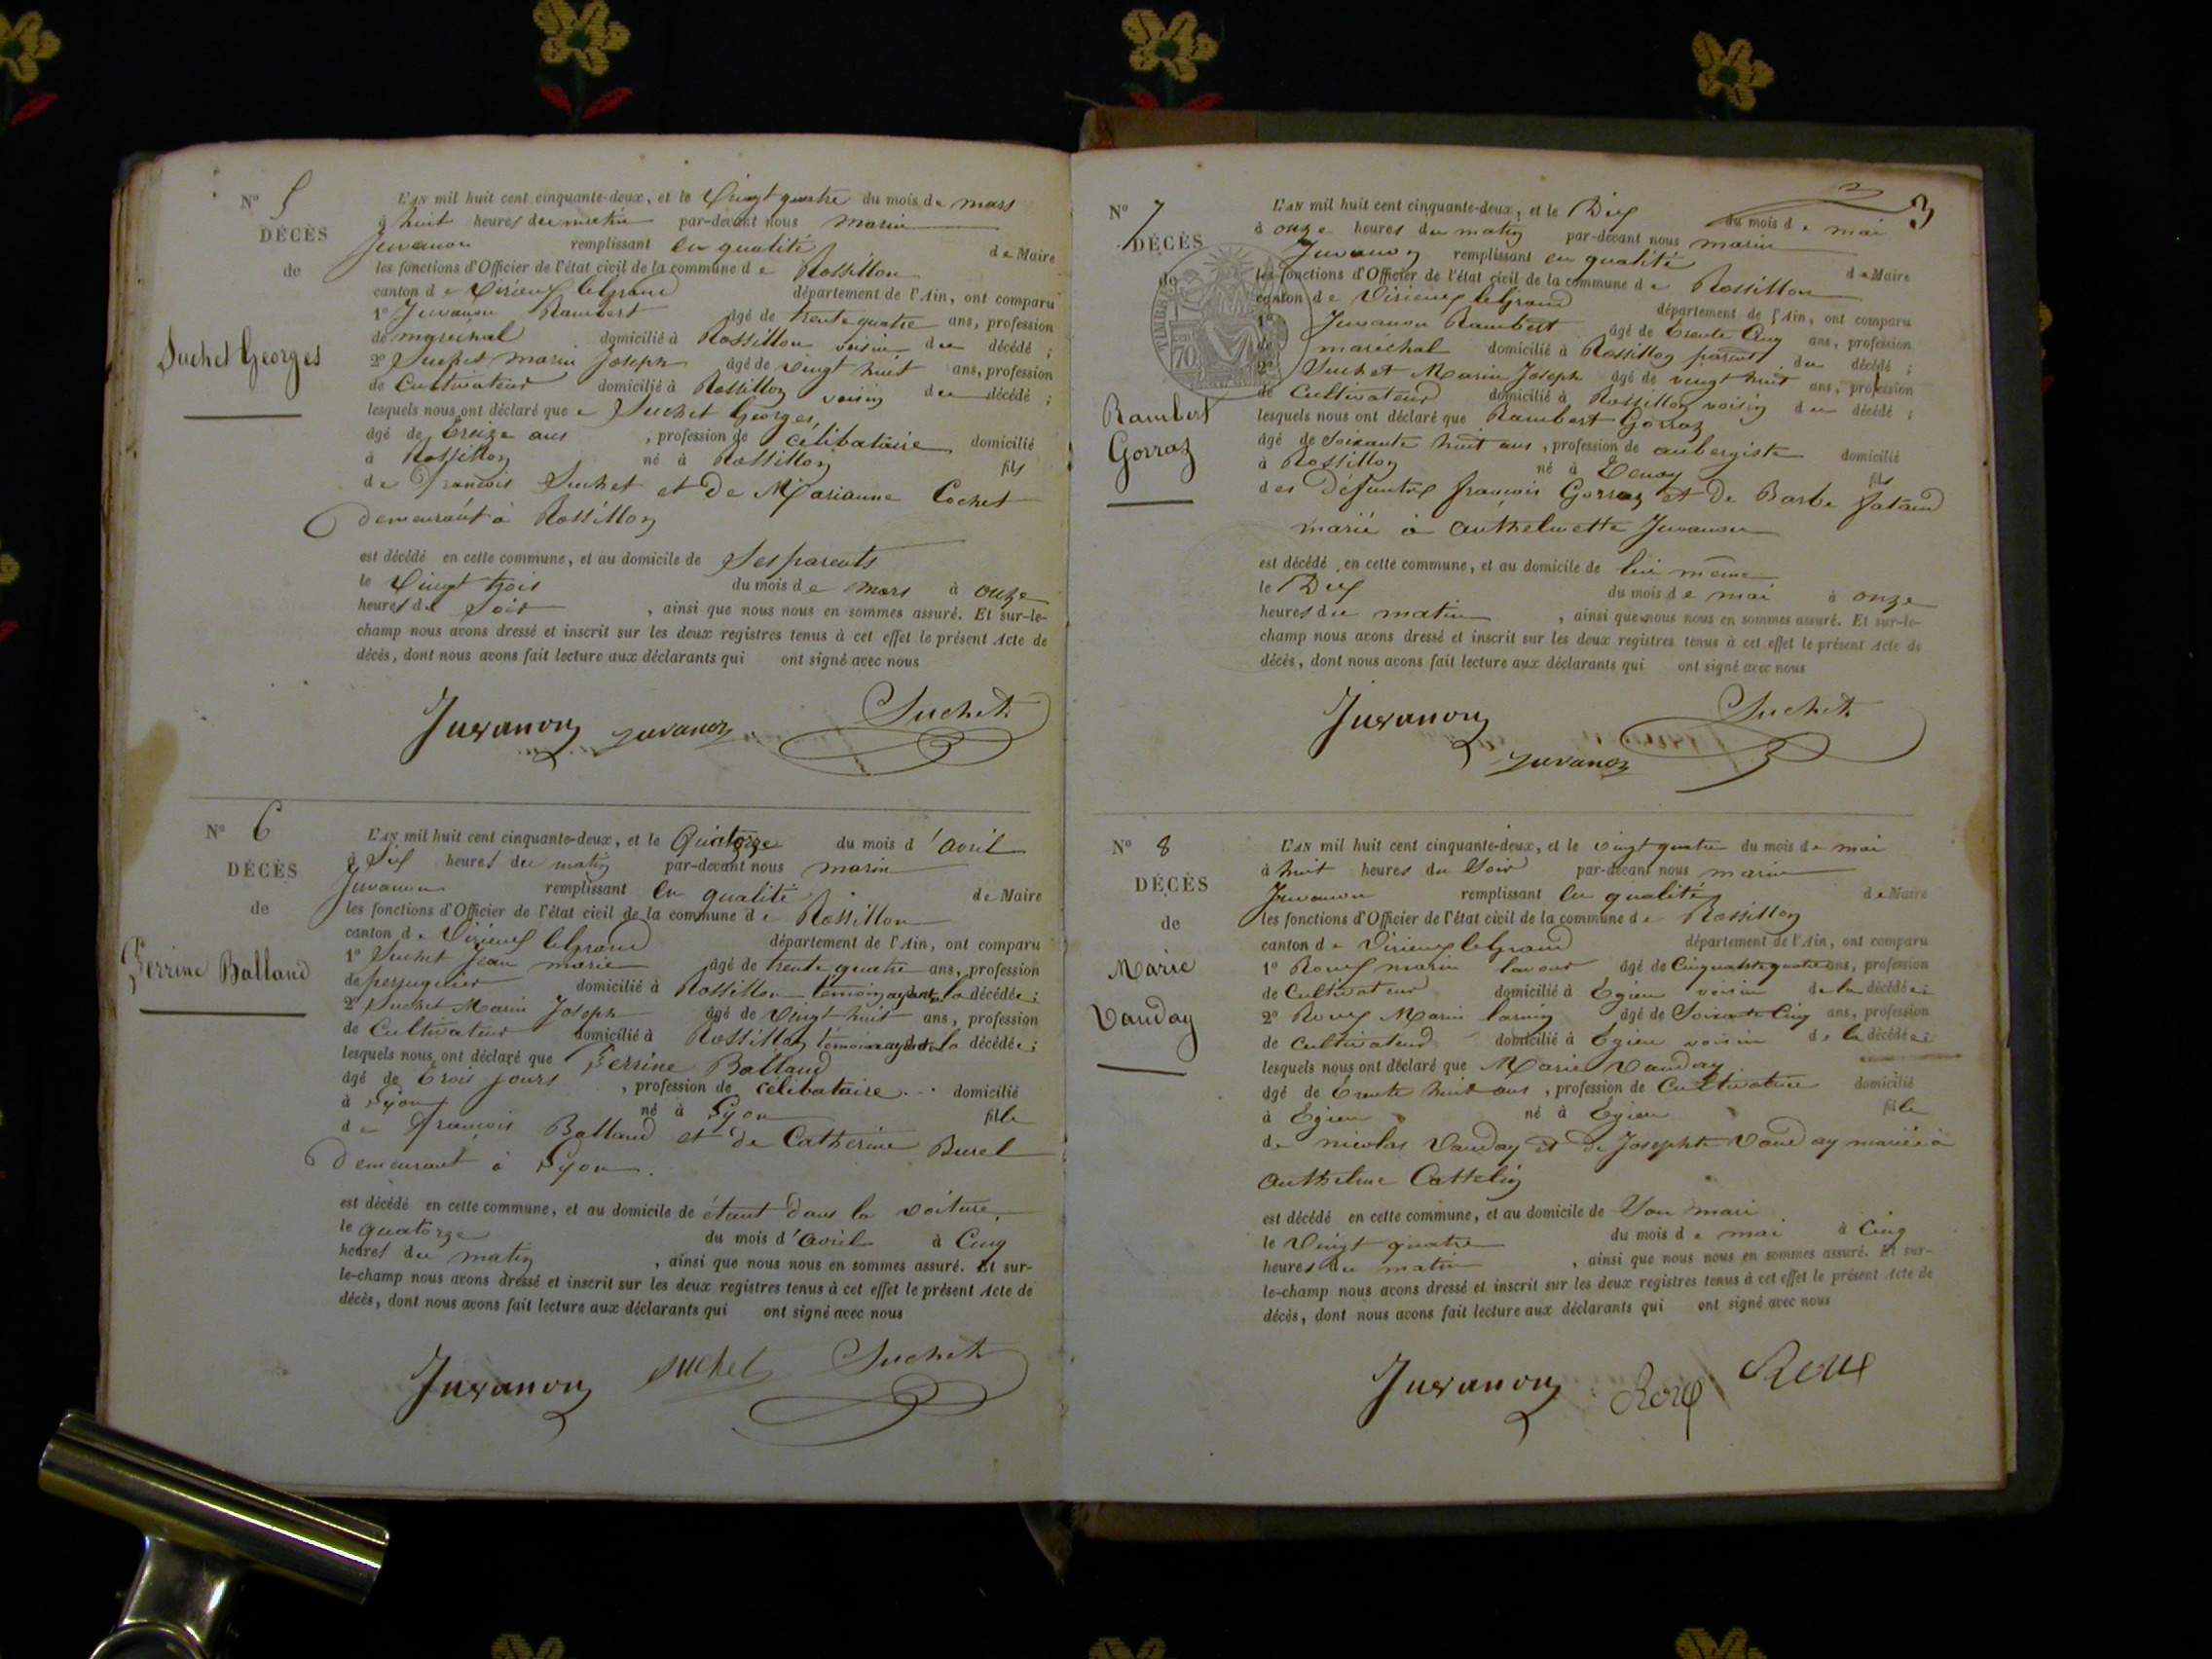 N° 5
DÉCÈS
de
Suchet Georges
L'AN mil huit cent cinquante-deux, et le Vingt quatre du mois de mars
à huit heures du matin par-devant nous marin
Juvanon remplissant en qualité de Maire
les fonctions d'Officier de l'état civil de la commune de Rossillon
canton de Virieux le Grand département de l'Ain, ont comparu
1° Juvanon Rambert âgé de trente quatre ans, profession
de maréchal domicilié à Rossillon voisin du décédé ;
2° Suchet Marin Joseph âgé de vingt huit ans, profession
de Cultivateur domicilié à Rossillon voisin du décédé ;
lesquels nous ont déclaré que Suchet Georges
âgé de treize ans , profession de célibataire domicilié
à Rossillon né à Rossillon fils
de françois Suchet et de Marianne Cochet
demeurant à Rossillon
est décédé en cette commune, et au domicile de Ses parents
le Vingt trois du mois de mars à onze
heures du Soir , ainsi que nous nous en sommes assuré. Et sur-le-
champ nous avons dressé et inscrit sur les deux registres tenus à cet effet le présent Acte de
décès, dont nous avons fait lecture aux déclarants qui ont signé avec nous
Juvanon juvanon Suchet
N° 6
DÉCÈS
de
Perrine Balland
L'AN mil huit cent cinquante-deux, et le Quatorze du mois d'avril
à Six heures du matin par-devant nous marin
Juvanon remplissant en qualité de Maire
les fonctions d'Officier de l'état civil de la commune de Rossillon
canton de Virieux le Grand département de l'Ain, ont comparu
1° Suchet jean marie âgé de trente quatre ans, profession
de domicilié à Rossillon témoin la décédée ;
2° Suchet Marin Joseph âgé de Vingt huit ans, profession
de Cultivateur domicilié à Rossillon témoin la décédée ;
lesquels nous ont déclaré que Perrine Balland
âgé de trois jours , profession de célibataire domicilié
à Lyon né à Lyon fille
de françois Balland et de Catherine Burel
demeurant à Lyon.
est décédé en cette commune, et au domicile de étant dans la voiture,
le quatorze du mois d'avril à Cinq
heures du matin , ainsi que nous nous en sommes assuré. Et sur-
le-champ nous avons dressé et inscrit sur les deux registres tenus à cet effet le présent Acte de
décès, dont nous avons fait lecture aux déclarants qui ont signé avec nous
Juvanon suchet Suchet
3
N° 7
DÉCÈS
de
TIMBRE
70
Rambert
Gorraz
L'AN mil huit cent cinquante-deux, et le Dix du mois de mai
à onze heures du matin par-devant nous marin
Juvanon remplissant en qualité de Maire
les fonctions d'Officier de l'état civil de la commune de Rossillon
canton de Virieux le Grand département de l'Ain, ont comparu
1° Juvanon Rambert âgé de trente Cinq ans, profession
de maréchal domicilié à Rossillon parent du décédé ;
2° Suchet Marin Joseph âgé de vingt huit ans, profession
de Cultivateur domicilié à Rossillon voisin du décédé ;
lesquels nous ont déclaré que Rambert Gorraz
âgé de soixante huit ans , profession de aubergiste domicilié
à Rossillon né à Tenay fils
des défunts françois Gorraz et de Barbe
marié à Anthelmette Juvanon
est décédé en cette commune, et au domicile de lui même
le Dix du mois de mai à onze
heures du matin , ainsi que nous nous en sommes assuré. Et sur-le-
champ nous avons dressé et inscrit sur les deux registres tenus à cet effet le présent Acte de
décès, dont nous avons fait lecture aux déclarants qui ont signé avec nous
Juvanon Suchet
juvanon
N° 8
DÉCÈS
de
Marie
Vauday
L'AN mil huit cent cinquante-deux, et le vingt quatre du mois de mai
à huit heures du Soir par-devant nous marin
Juvanon remplissant en qualité de Maire
les fonctions d'Officier de l'état civil de la commune de Rossillon
canton de Virieux le Grand département de l'Ain, ont comparu
1° Roux marin âgé de Cinquante quatre ans, profession
de Cultivateur domicilié à Egieu voisin de la décédée ;
2° Roux Marin âgé de Soixante Cinq ans, profession
de Cultivateur domicilié à Egieu voisin de la décédée ;
lesquels nous ont déclaré que Marie Vauday
âgé de trente huit ans , profession de Cultivatrice domicilié
à Egieu né à Egieu fille
de nicolas Vauday et de Josephte Vauday mariée à
Anthelme Cattelin
est décédé en cette commune, et au domicile de Son mari
le Vingt quatre du mois de mai à Cinq
heures du matin , ainsi que nous nous en sommes assuré. Et sur-
le-champ nous avons dressé et inscrit sur les deux registres tenus à cet effet le présent Acte de
décès, dont nous avons fait lecture aux déclarants qui ont signé avec nous
Juvanon Roux Roux